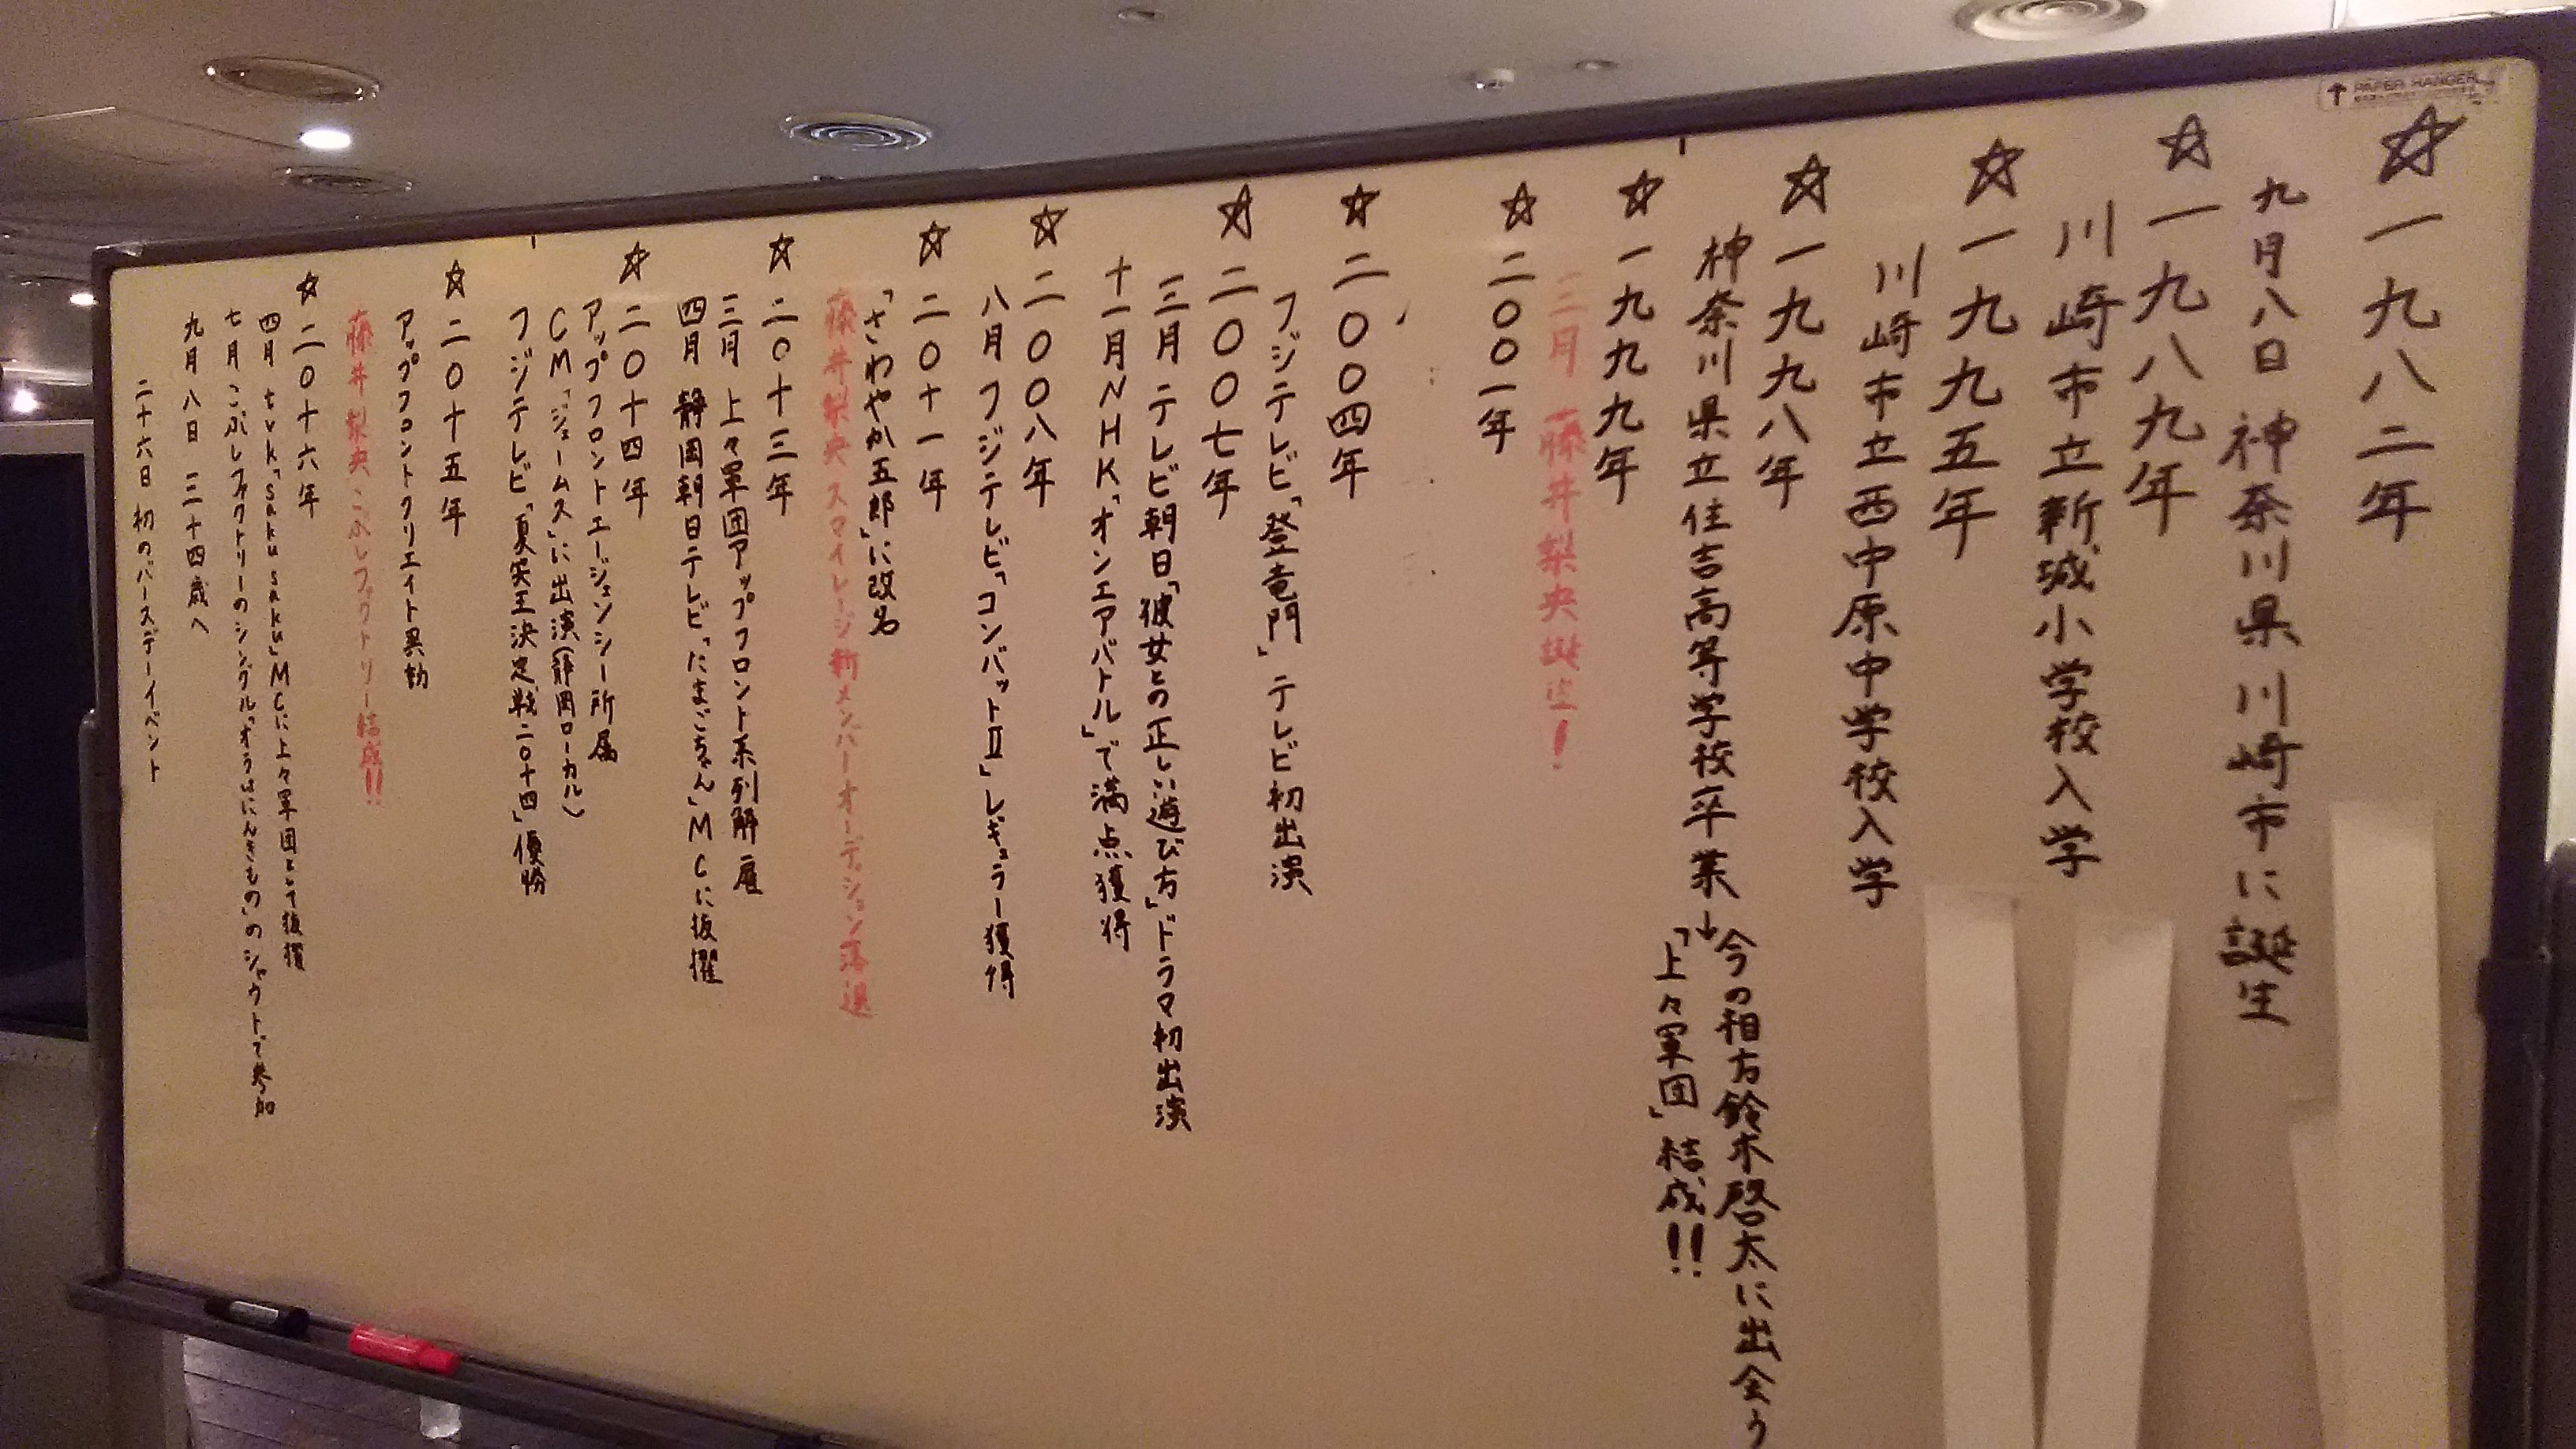 PAPER HANGER
☆一九八二年
九月八日 神奈川県川崎市に誕生
☆一九八九年
川崎市立新城小学校入学
☆一九九五年
川崎市立西中原中学校入学
☆一九九八年
神奈川県立住吉高等学校卒業→今の相方鈴木啓太に出会う
「上々軍団」結成!!
☆一九九九年
三月 藤井梨央誕生!
☆二〇〇一年
☆二〇〇四年
フジテレビ「登竜門」テレビ初出演
☆二〇〇七年
三月 テレビ朝日「彼女との正しい遊び方」ドラマ初出演
十一月NHK「オンエアバトル」で満点獲得
☆二〇〇八年
八月 フジテレビ「コンバットⅡ」レギュラー獲得
☆二〇十一年
「さわやか五郎」に改名
藤井梨央 スマイレージ新メンバーオーディション落選
☆二〇十三年
三月 上々軍団アップフロント系列解雇
四月 静岡朝日テレビ「にまごちゃん」MCに抜擢
☆二〇十四年
アップフロントエージェンシー所属
CM「ジェームス」に出演(静岡ローカル)
フジテレビ「夏笑王決定戦二〇十四」優勝
☆二〇十五年
アップフロントクリエイト異動
藤井梨央 こぶしファクトリー結成!!
☆二〇十六年
四月 tvk「sakusaku」MCに上々軍団として抜擢
七月 こぶしファクトリーのシングル「オラはにんきもの」のシャウトで参加
九月八日 三十四歳へ
二十六日 初のバースデーイベント